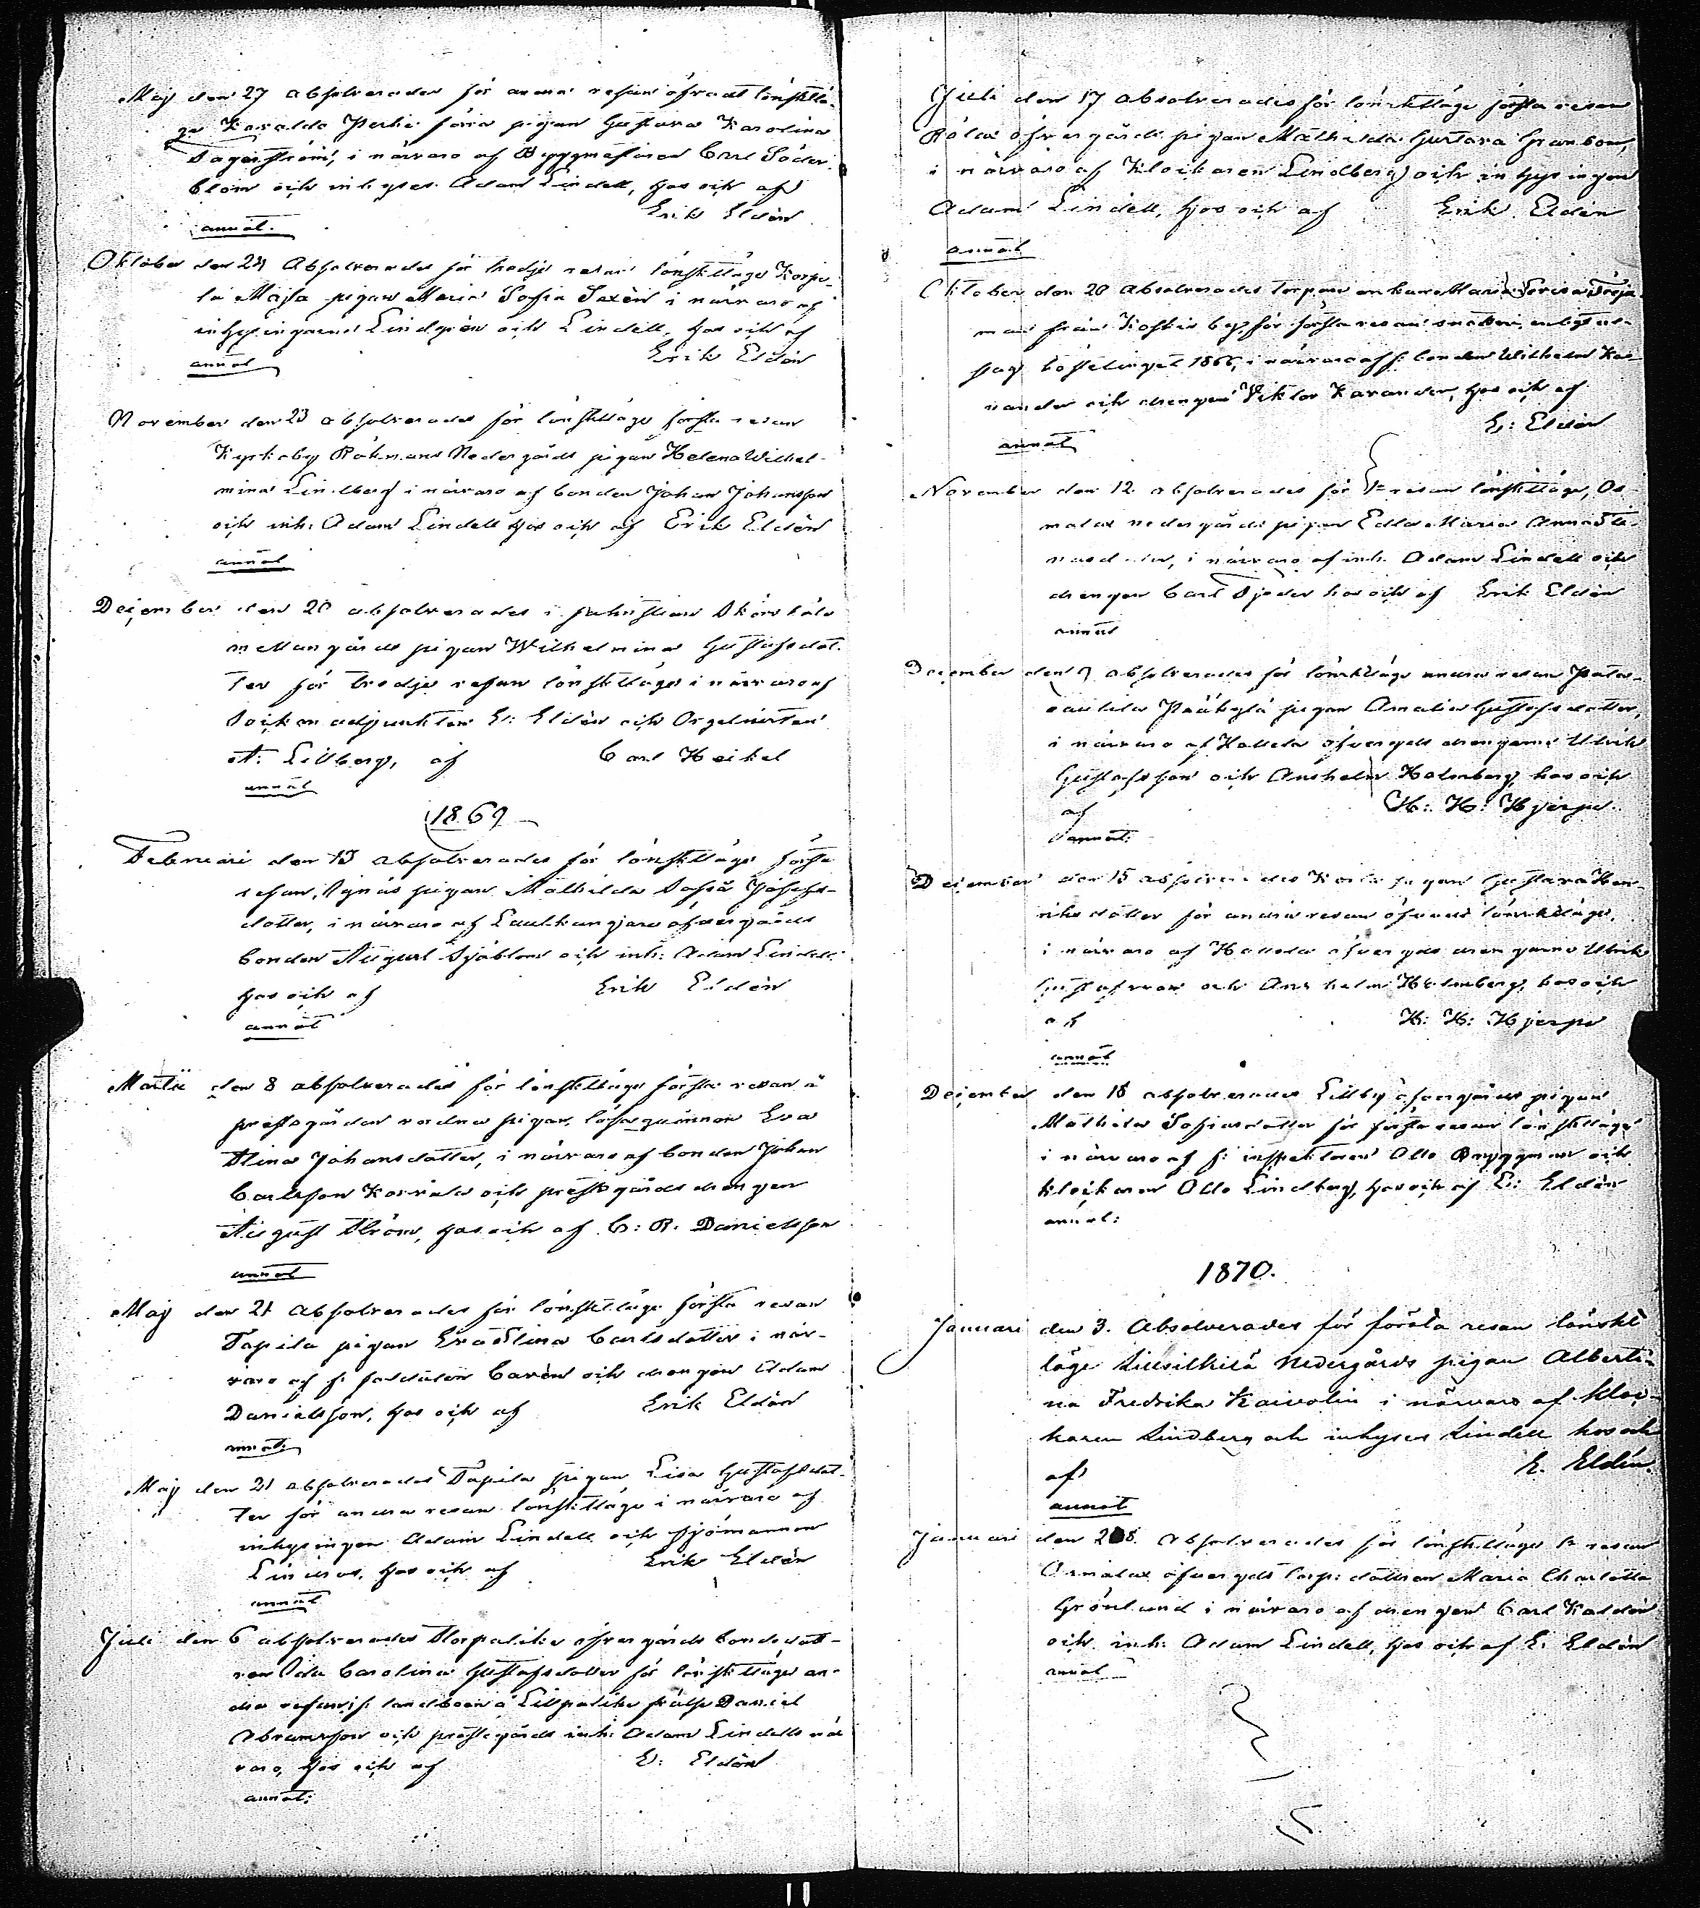 Maj den 27 absolverades för annur resan öfvadt lönsklä-
ge Kavaldo Perho föria pigan Gustava Karolina
Sagerström, i närvaro af Byggmästaren Carl Söder
blom och inhyses Adam Lindell, hos och af
Erik Eldén
annot.
Oktober den 24 Absolverades för tredje resan lönskläge Korpi-
la Maja pigan Maria Sofia Saxén i närvaro af
inhysingarne Lindgrén och Lindell, hos och af
Erik Eldén
annot
November den 23 absolverades för lönskläge första resan
Kyrkoby Råkmans Nedergårds pigan Helena Wilhel-
mina Lindberg i närvaro af bonden Johan Johansson
och inh: Adam Lindell hos och af Erik Eldén
annot
December den 20 absolverades i sakristian
mellangårds pigan Wilhelmina Gustafsdot-
ter för tredje resan lönskläge i närvaro af
Sockneadjunkten E: Eldén och Orgelnisten
A: Lillberg, af Carl Heikel
annot
1869
Februari den 13 absolverades för lönskläge första
resan, pigan Mathilda Sofia Josefs-
dotter, i närvaro af Laukkangare öfvergårds
bonden August Sjöblom och inh: Adam Lindell
hos och af Erik Eldén
annot
Martii den 8 absolverades för lönskläge första resan å
prestgården vordna pigan, lösa qvinnan Eva
Stina Johansdotter, i närvaro af bonden Johan
Carlsson Korvala och prestgårds drengen
August Ström, hos och af C: R. Danielsson
annot
Maj den 21 absolverades för lönskläge första resan
Tapila pigan Eva Stina Carlsdotter i när-
varo af f: soldaten Carén och drengen Adam
Danielsson, hos och af Erik Eldén
annot:
Maj den 21 absolverades Tapila pigan Lisa Gustafsdot-
ter för andra resan lönskläge i närvaro af
inhysingen Adam Lindell och sjömannen
Lindros, hos och af Erik Eldén
annot
Juli den 6 absolverades Storpalike öfvergårds bondedott-
ren Ida Carolina Gustafsdotter för lönskläge an-
dra resan, i f: landboen å Lillpalike frälse Daniel
Abramsson och prestegårds inh: Adam Lindells när
varo, hos och af E: Eldén
annot:
Juli den 17 absolverades för lönskläge första resan
Röla öfvergårds pigan Mathilda Gustava Granbom,
i närvaro af Klockaren Lindberg och inhysingen
Adam Lindell, hos och af Erik Eldén
annot
Oktober den 20 absolverades torpare enkan Maria Lovisa
man från Koskis by, för första resan snatteri, enligt ut-
slag höstetinget 1866, i närvaro af f: bonden Wilhelm Ka-
vander och drengen Viktor Kavander, hos och af
E: Eldén
annot
November den 12 absolverades för 1:a resan lönskläge, Os-
malax nedergårds pigan Edla Maria Anna Ste-
, i närvaro af inh. Adam Lindell och
drengen Carl Sjöder hos och af Erik Eldén
annot
December den 9 absolverades för lönskläge andra resan Pata-
Pääkylä pigan Amalia Gustafsdotter,
i närvaro af Kallela öfvergds drengarne Ulrik
Gustafsson och Anshelm Holmberg, hos och
af H: H: Hjerpe.
annot:
December den 15 absolverades pigan Gustava Hen-
riksdotter för andra resan öfvad lönskläge,
i närvaro af Kallela öfvergds drengarne Ulrik
Gustafsson och Anshelm Holmberg, hos och
af H: H: Hjerpe
annot
December den 18 absolverades Lillby öfvergårds pigan
Mathilda Sofiasdotter för första resan lönskläge
i närvaro af f: inspektoren Otto Bryggman och
klockaren Otto Lindberg, hos och af E: Eldén
annot:
1870.
Januari den 3. Absolverades för första resan lönskt
läge Liusilkilä Nedergårds pigan Alberti-
na Fredrika Kaivolin i närvaro af kloc-
karen Lindberg och inhyses Lindell hos och
af E. Eldén.
annot
Januari den 28. absolverades för lönskläge 1:a resan
Osmalax öfvergds torp: dottren Maria Charlotta
Grönlund i närvaro af drengen Carl Kaldén
och inh: Adam Lindell, hos och af E: Eldén
annot